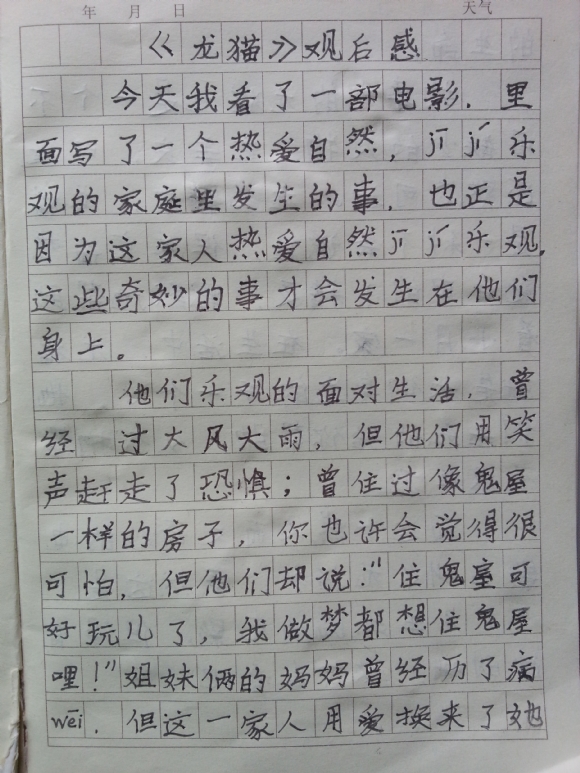 年 月 日 天气
《龙猫》观后感
今天我看了一部电影.里
面写了一个热爱自然,jī jí乐
观的家庭里发生的事.也正是
因为这家人热爱自然jī jí乐观,
这些奇妙的事才会发生在他们
身上。
他们乐观的面对生活.曾
经 过大风大雨,但他们用笑
声赶走了恐惧;曾住过像鬼屋
一样的房子,你也许会觉得很
可怕,但他们却说:"住鬼屋可
好玩儿了,我做梦都想住鬼屋
哩!"姐妹俩的妈妈曾经历了病
wēi.但这一家人用爱换来了她